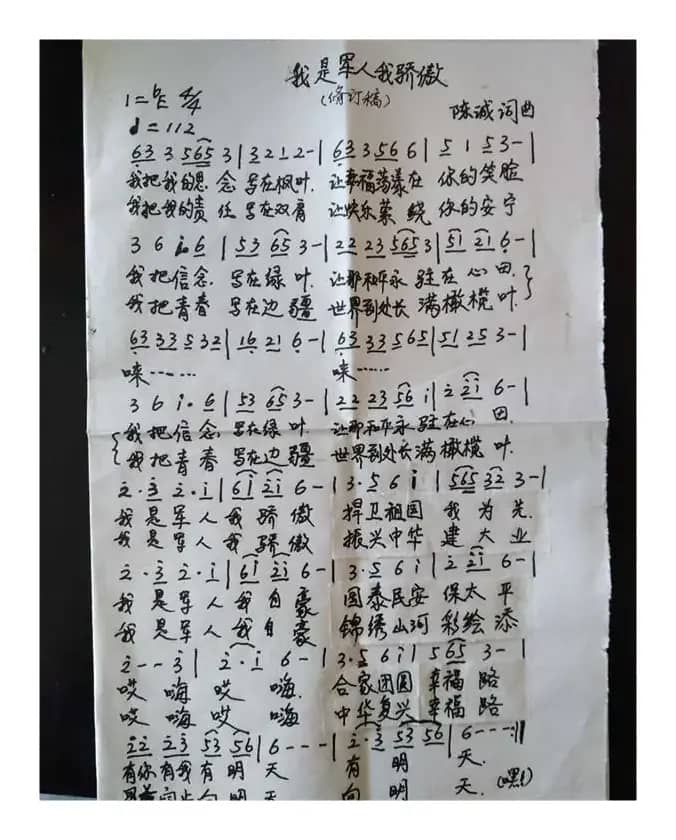 我是军人我骄傲
(修订稿)
1=bE 4/4
陈诚词曲
♩=112
63 3 565 3 | 3 2 1 2 - | 63 3 56 6 | 5 1 5 3 - |
我把我的思 念 写在枫叶. 让幸福荡漾在 你的笑脸
我把我的责 任 写在双肩 让快乐萦绕 你的安宁
3 6 i. 6 | 53 65 3 - | 22 23 565 3 | 51 21 6 - |
我把信念. 写在绿叶. 让那和平永 驻在心田.
我把青春 写在边疆 世界到处长满橄榄叶.
63 33 5 32 | 16 21 6 - | 63 33 5 65 | 51 25 3 - |
唻…… 唻……
3 6 i. 6 | 53 65 3 - | 22 23 56 i | 2 2i 6 - |
我把信念 写在绿叶 让那和平永驻在心 田.
我把青春 写在边疆 世界到处长满橄榄 叶.
2. 3 2. i | 6i 2i 6 - | 3. 5 6 i | 565 32 3 - |
我是军人我骄傲 捍卫祖国 我为先.
我是军人我骄傲 振兴中华 建大业
2. 3 2. i | 6i 2i 6 - | 3. 5 6 i | 2 2i 6 - |
我是军人我自豪 国泰民安 保太平
我是军人我自豪 锦绣山河 彩绘添
2 - - 3 | 2. i 6 - | 3. 5 6 i | 5 65 3 - |
哎 嗨 哎 嗨. 合家团圆 幸福路
哎 嗨 哎 嗨 中华复兴 幸福路
22 23 53 56 | 6 - - - | 2. 3 53 56 | 6 - - - :||
有你有我有 明 天 有 明 天.
向 明 天 向 明 天. (嘿!)